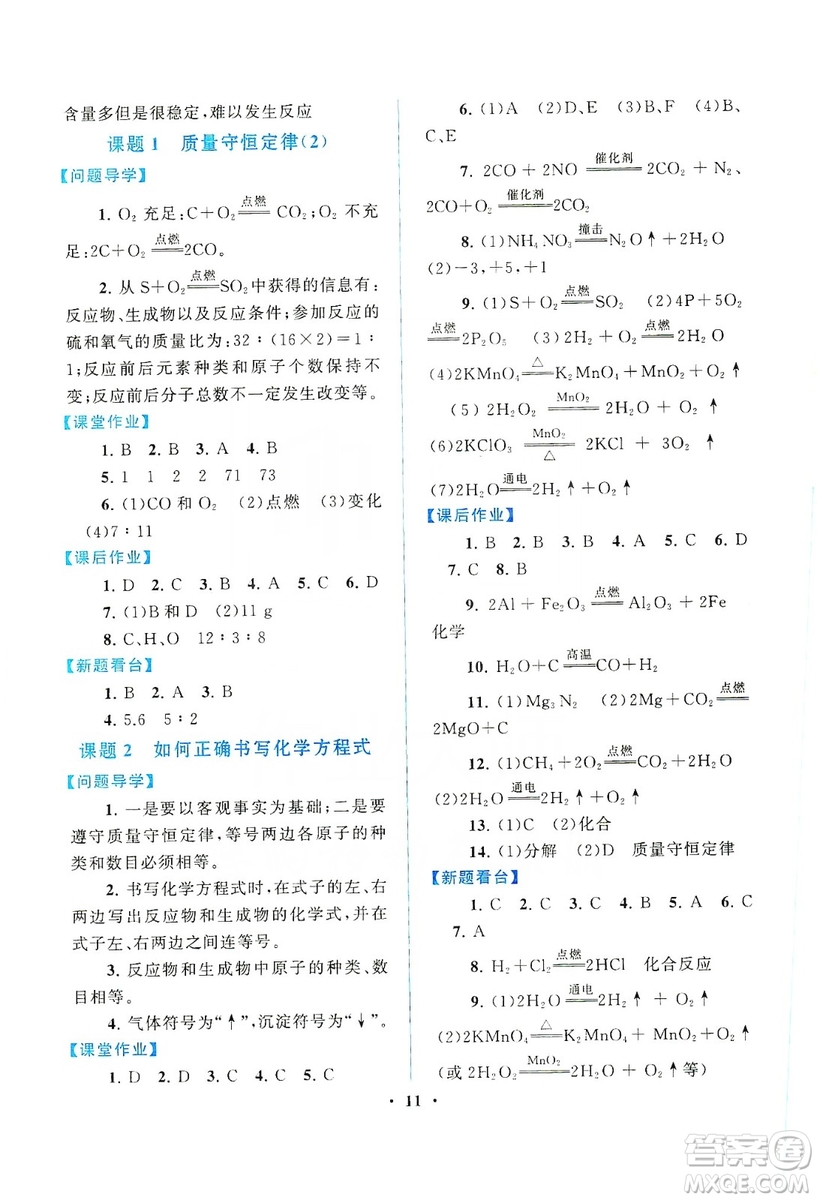 含量多但是很稳定,难以发生反应
课题1 质量守恒定律(2)
【问题导学】
1. O₂ 充足:C+O₂ =点燃= CO₂;O₂ 不充
足:2C+O₂ =点燃= 2CO。
2. 从 S+O₂ =点燃= SO₂ 中获得的信息有:
反应物、生成物以及反应条件;参加反应的
硫和氧气的质量比为:32∶(16×2)=1∶
1;反应前后元素种类和原子个数保持不
变;反应前后分子总数不一定发生改变等。
【课堂作业】
1. B 2. B 3. A 4. B
5. 1 1 2 2 71 73
6. (1)CO 和 O₂ (2)点燃 (3)变化
(4)7∶11
【课后作业】
1. D 2. C 3. B 4. A 5. C 6. D
7. (1)B 和 D (2)11 g
8. C、H、O 12∶3∶8
【新题看台】
1. B 2. A 3. B
4. 5.6 5∶2
课题2 如何正确书写化学方程式
【问题导学】
1. 一是要以客观事实为基础;二是要
遵守质量守恒定律,等号两边各原子的种
类和数目必须相等。
2. 书写化学方程式时,在式子的左、右
两边写出反应物和生成物的化学式,并在
式子左、右两边之间连等号。
3. 反应物和生成物中原子的种类、数
目相等。
4. 气体符号为“↑”,沉淀符号为“↓”。
【课堂作业】
1. D 2. C 3. C 4. B 5. C
6. (1)A (2)D、E、F (3)D (4)B、
C、E
7. 2CO + 2NO =催化剂= 2CO₂ + N₂、
2CO+O₂ =催化剂= 2CO₂
8. (1)NH₄NO₃ =撞击= N₂O↑+2H₂O
(2)-3,+5,+1
9. (1)S+O₂ =点燃= SO₂ (2)4P+5O₂
=点燃= 2P₂O₅ (3)2H₂+O₂ =点燃= 2H₂O
(4)2KMnO₄ =△= K₂MnO₄+MnO₂+O₂↑
(5) 2H₂O₂ =MnO₂= 2H₂O + O₂ ↑
(6)2KClO₃ =MnO₂ △= 2KCl + 3O₂ ↑
(7)2H₂O =通电= 2H₂↑+O₂↑
【课后作业】
1. B 2. B 3. C 4. B 5. C 6. D
7. C 8. B
9. 2Al + Fe₂O₃ =点燃= Al₂O₃ + 2Fe
化学
10. H₂O+C =高温= CO+H₂
11. (1)Mg₃N₂ (2)2Mg+CO₂ =点燃=
2MgO+C
12. (1)CH₄+2O₂ =点燃= CO₂+2H₂O
(2)2H₂O =通电= 2H₂↑+O₂↑
13. (1)C (2)化合
14. (1)分解 (2)D 质量守恒定律
【新题看台】
1. C 2. C 3. A 4. B 5. C 6. D
7. A
8. H₂+Cl₂ =点燃= 2HCl 化合反应
9. (1)2H₂O =通电= 2H₂ ↑ + O₂ ↑
(2)2KMnO₄ =△= K₂MnO₄+MnO₂+O₂↑
(或 2H₂O₂ =MnO₂= 2H₂O+O₂↑等)
• 11 •
答案圈
MXQE.COM